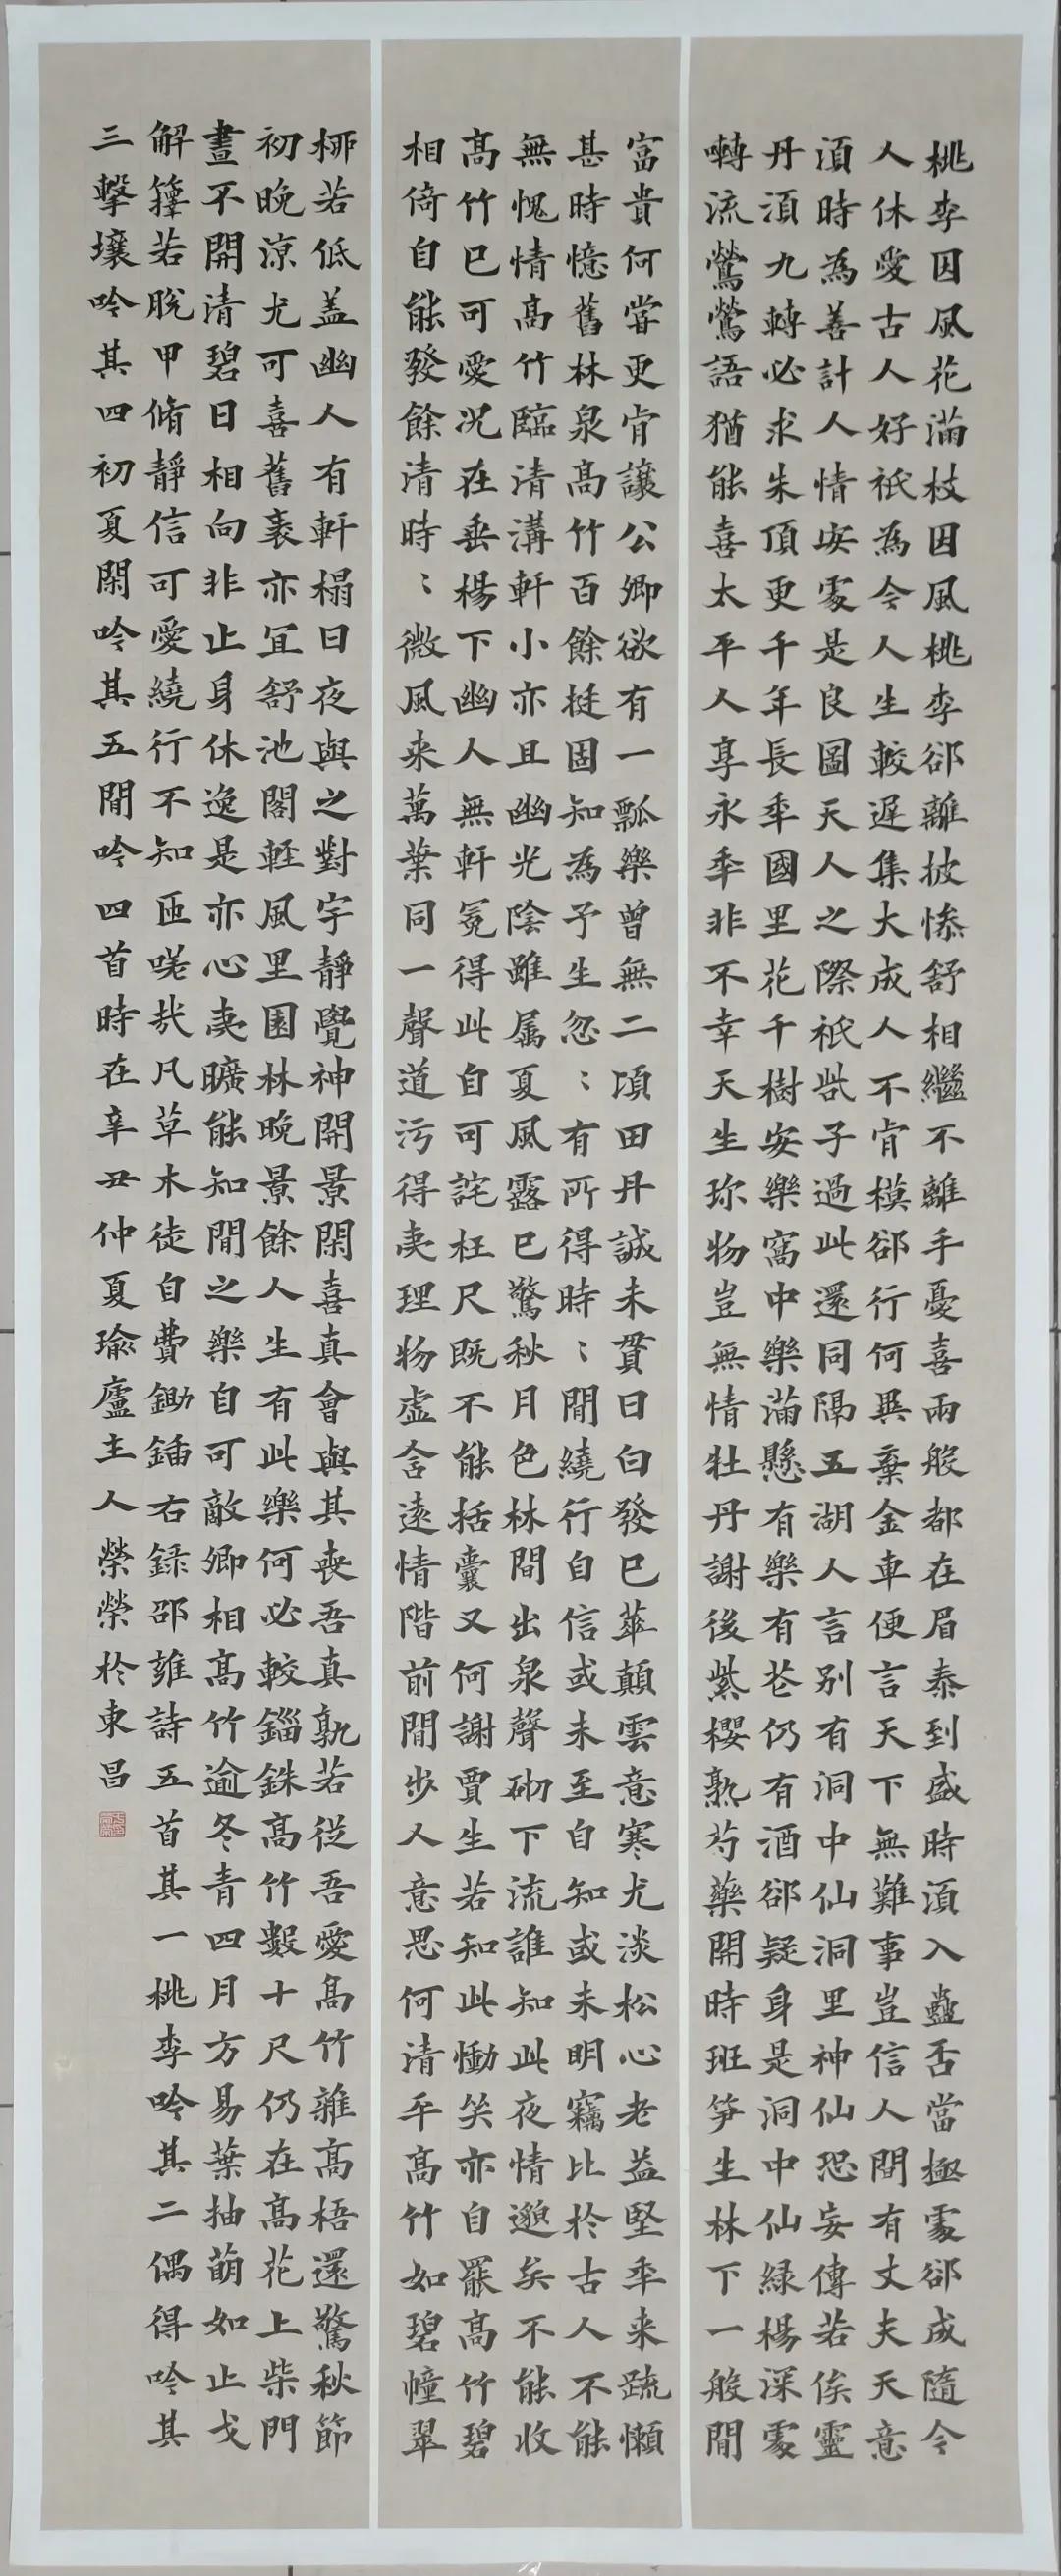 桃李因風花滿枝因風桃李郤離披慘舒相繼不離手憂喜兩般都在眉泰到盛時須入蠱否當極處郤成隨今
人休愛古人好祇為今人生較遲集大成人不肯模郤行何異棄金車便言天下無難事豈信人間有丈夫天意
須時為善計人情安處是良圖天人之際祇此子過此還同隔五湖人言別有洞中仙洞里神仙恐妄傳若俟靈
丹須九轉必求朱頂更千年長年國里花千樹安樂窩中樂滿懸有樂有花仍有酒郤疑身是洞中仙綠楊深處
囀流鶯鶯語猶能喜太平人享永年非不幸天生珎物豈無情牡丹謝後紫櫻熟芍藥開時班笋生林下一般閒
富貴何嘗更肯讓公卿欲有一瓢樂曾無二項田丹誠未貫日白發已華顛雲意寒尤淡松心老益堅年来疏懶
甚時憶舊林泉高竹百餘挺固知為予生忽〻有所得時〻閒繞行自信或未至自知或未明竊比於古人不能
無愧情高竹臨清溝軒小亦且幽光陰雖屬夏風露已驚秋月色林間出泉聲砌下流誰知此夜情邈矣不能收
高竹已可愛况在垂楊下幽人無軒冕得此自可詫枉尺既不能括囊又何謝賈生若知此慟笑亦自罷高竹碧
相倚自能發餘清時〻微風来萬葉同一聲道污得夷理物虛含遠情階前閒步人意思何清平高竹如碧幢翠
柳若低盖幽人有軒榻日夜與之對宇靜覺神開景閑喜真會與其喪吾真孰若從吾愛高竹雜高梧還驚秋節
初晚涼尤可喜舊袠亦宜舒池閣輕風里園林晚景餘人生有此樂何必較錙銖高竹數十尺仍在高花上柴門
晝不開清碧日相向非止身休逸是亦心夷曠能知閒之樂自可敵卿相高竹逾冬青四月方易葉抽萌如止戈
解籜若脫甲脩靜信可愛繞行不知匝嗟哉凡草木徒自費鋤鍤右録邵雍詩五首其一桃李吟其二偶得吟其
三擊壤吟其四初夏閑吟其五閒吟四首時在辛丑仲夏瑜廬主人榮榮於東昌